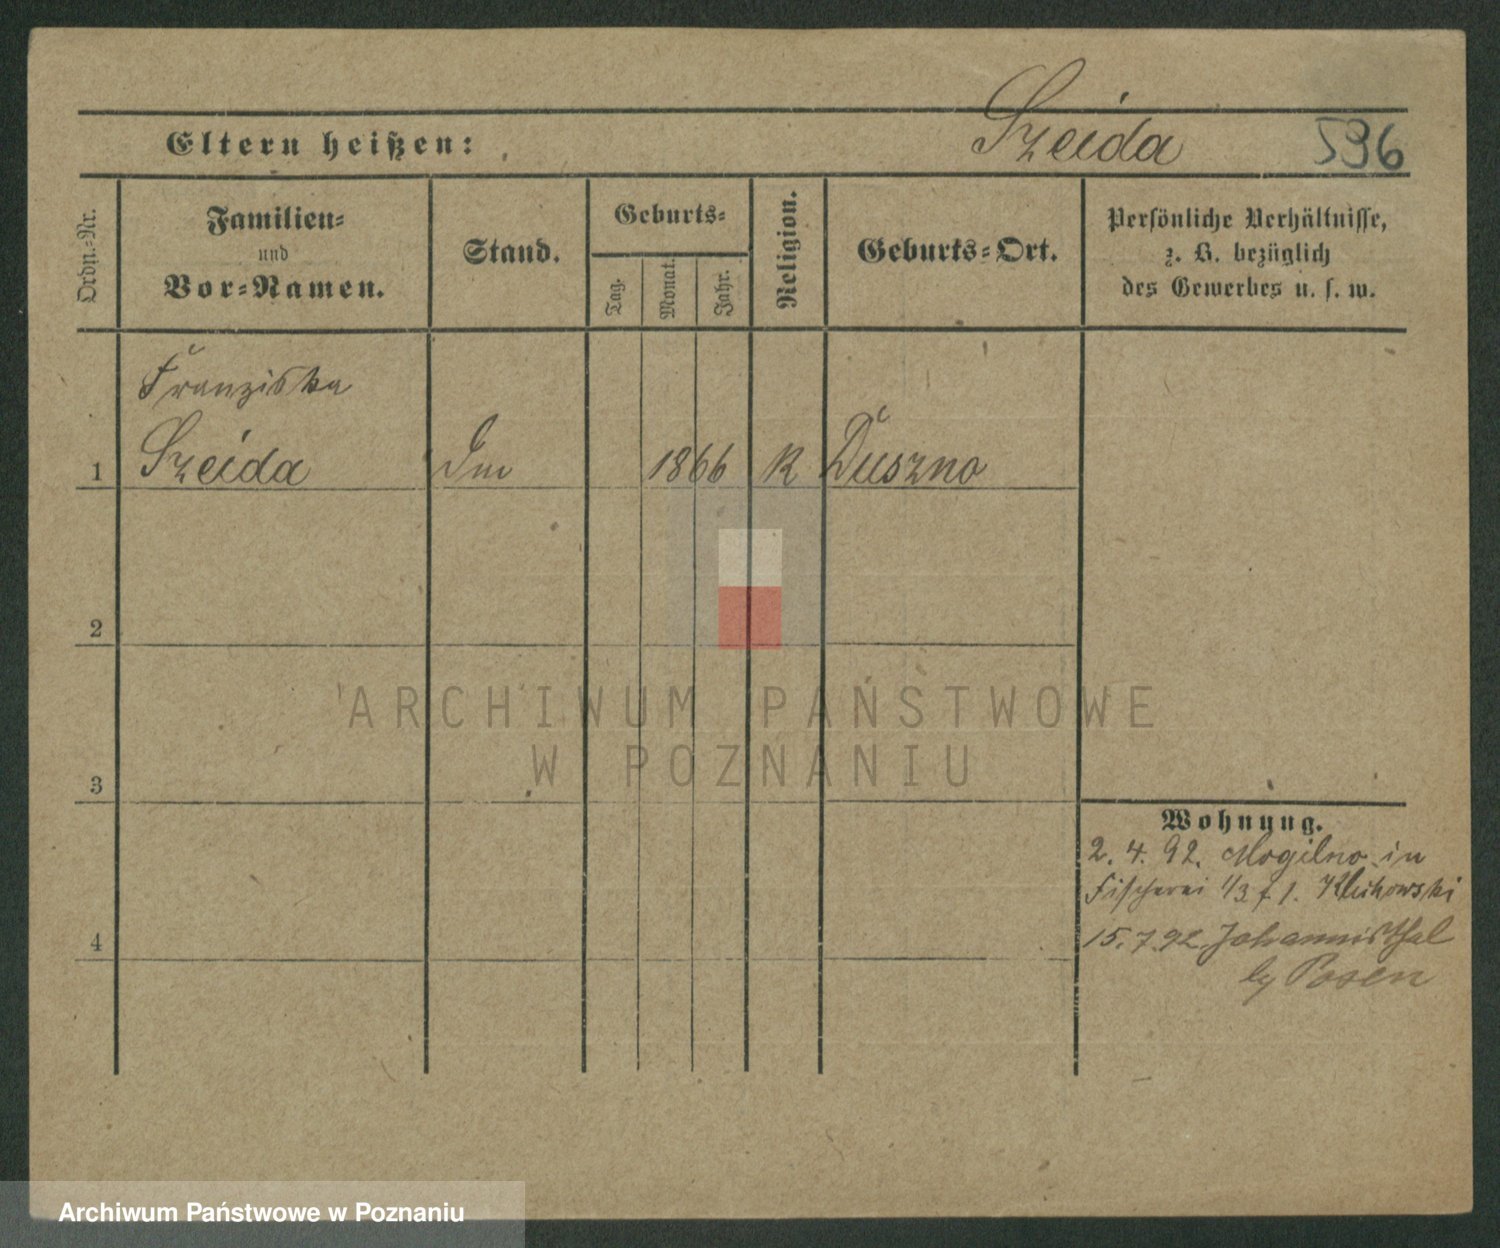 Szeida 596
Eltern heißen:
Ordn.-Nr.
Familien-
und
Vor-Namen.
Stand.
Geburts-
Tag.
Monat.
Jahr.
Religion.
Geburts-Ort.
Persönliche Verhältnisse,
z. B. bezüglich
des Gewerbes u. s. w.
Franziska
1 Szeida 1866 K Duszno
2
3
4
Wohnung.
2. 4. 92. Mogilno in
Fischerei 1/3 f 1.
15. 7. 92. Johannisthal
by Posen
ARCHIWUM PAŃSTWOWE
W POZNANIU
Archiwum Państwowe w Poznaniu